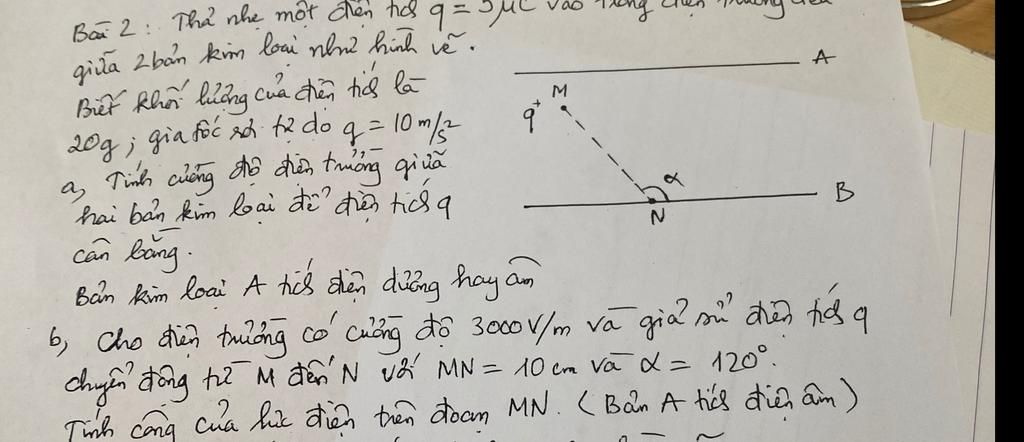 Bài 2: Thả nhẹ một điện tích q = 5 μC vào trong điện trường đều
giữa 2 bản kim loại như hình vẽ.
Biết khối lượng của điện tích là
20g; gia tốc rơi tự do g = 10 m/s²
a, Tính cường độ điện trường giữa
hai bản kim loại để điện tích q
cân bằng.
Bản kim loại A tích điện dương hay âm
b, Cho điện trường có cường độ 3000 V/m và giả sử điện tích q
chuyển động từ M đến N với MN = 10 cm và α = 120°.
Tính công của lực điện trên đoạn MN. (Bản A tích điện âm)
A
M
q⁺
α
B
N